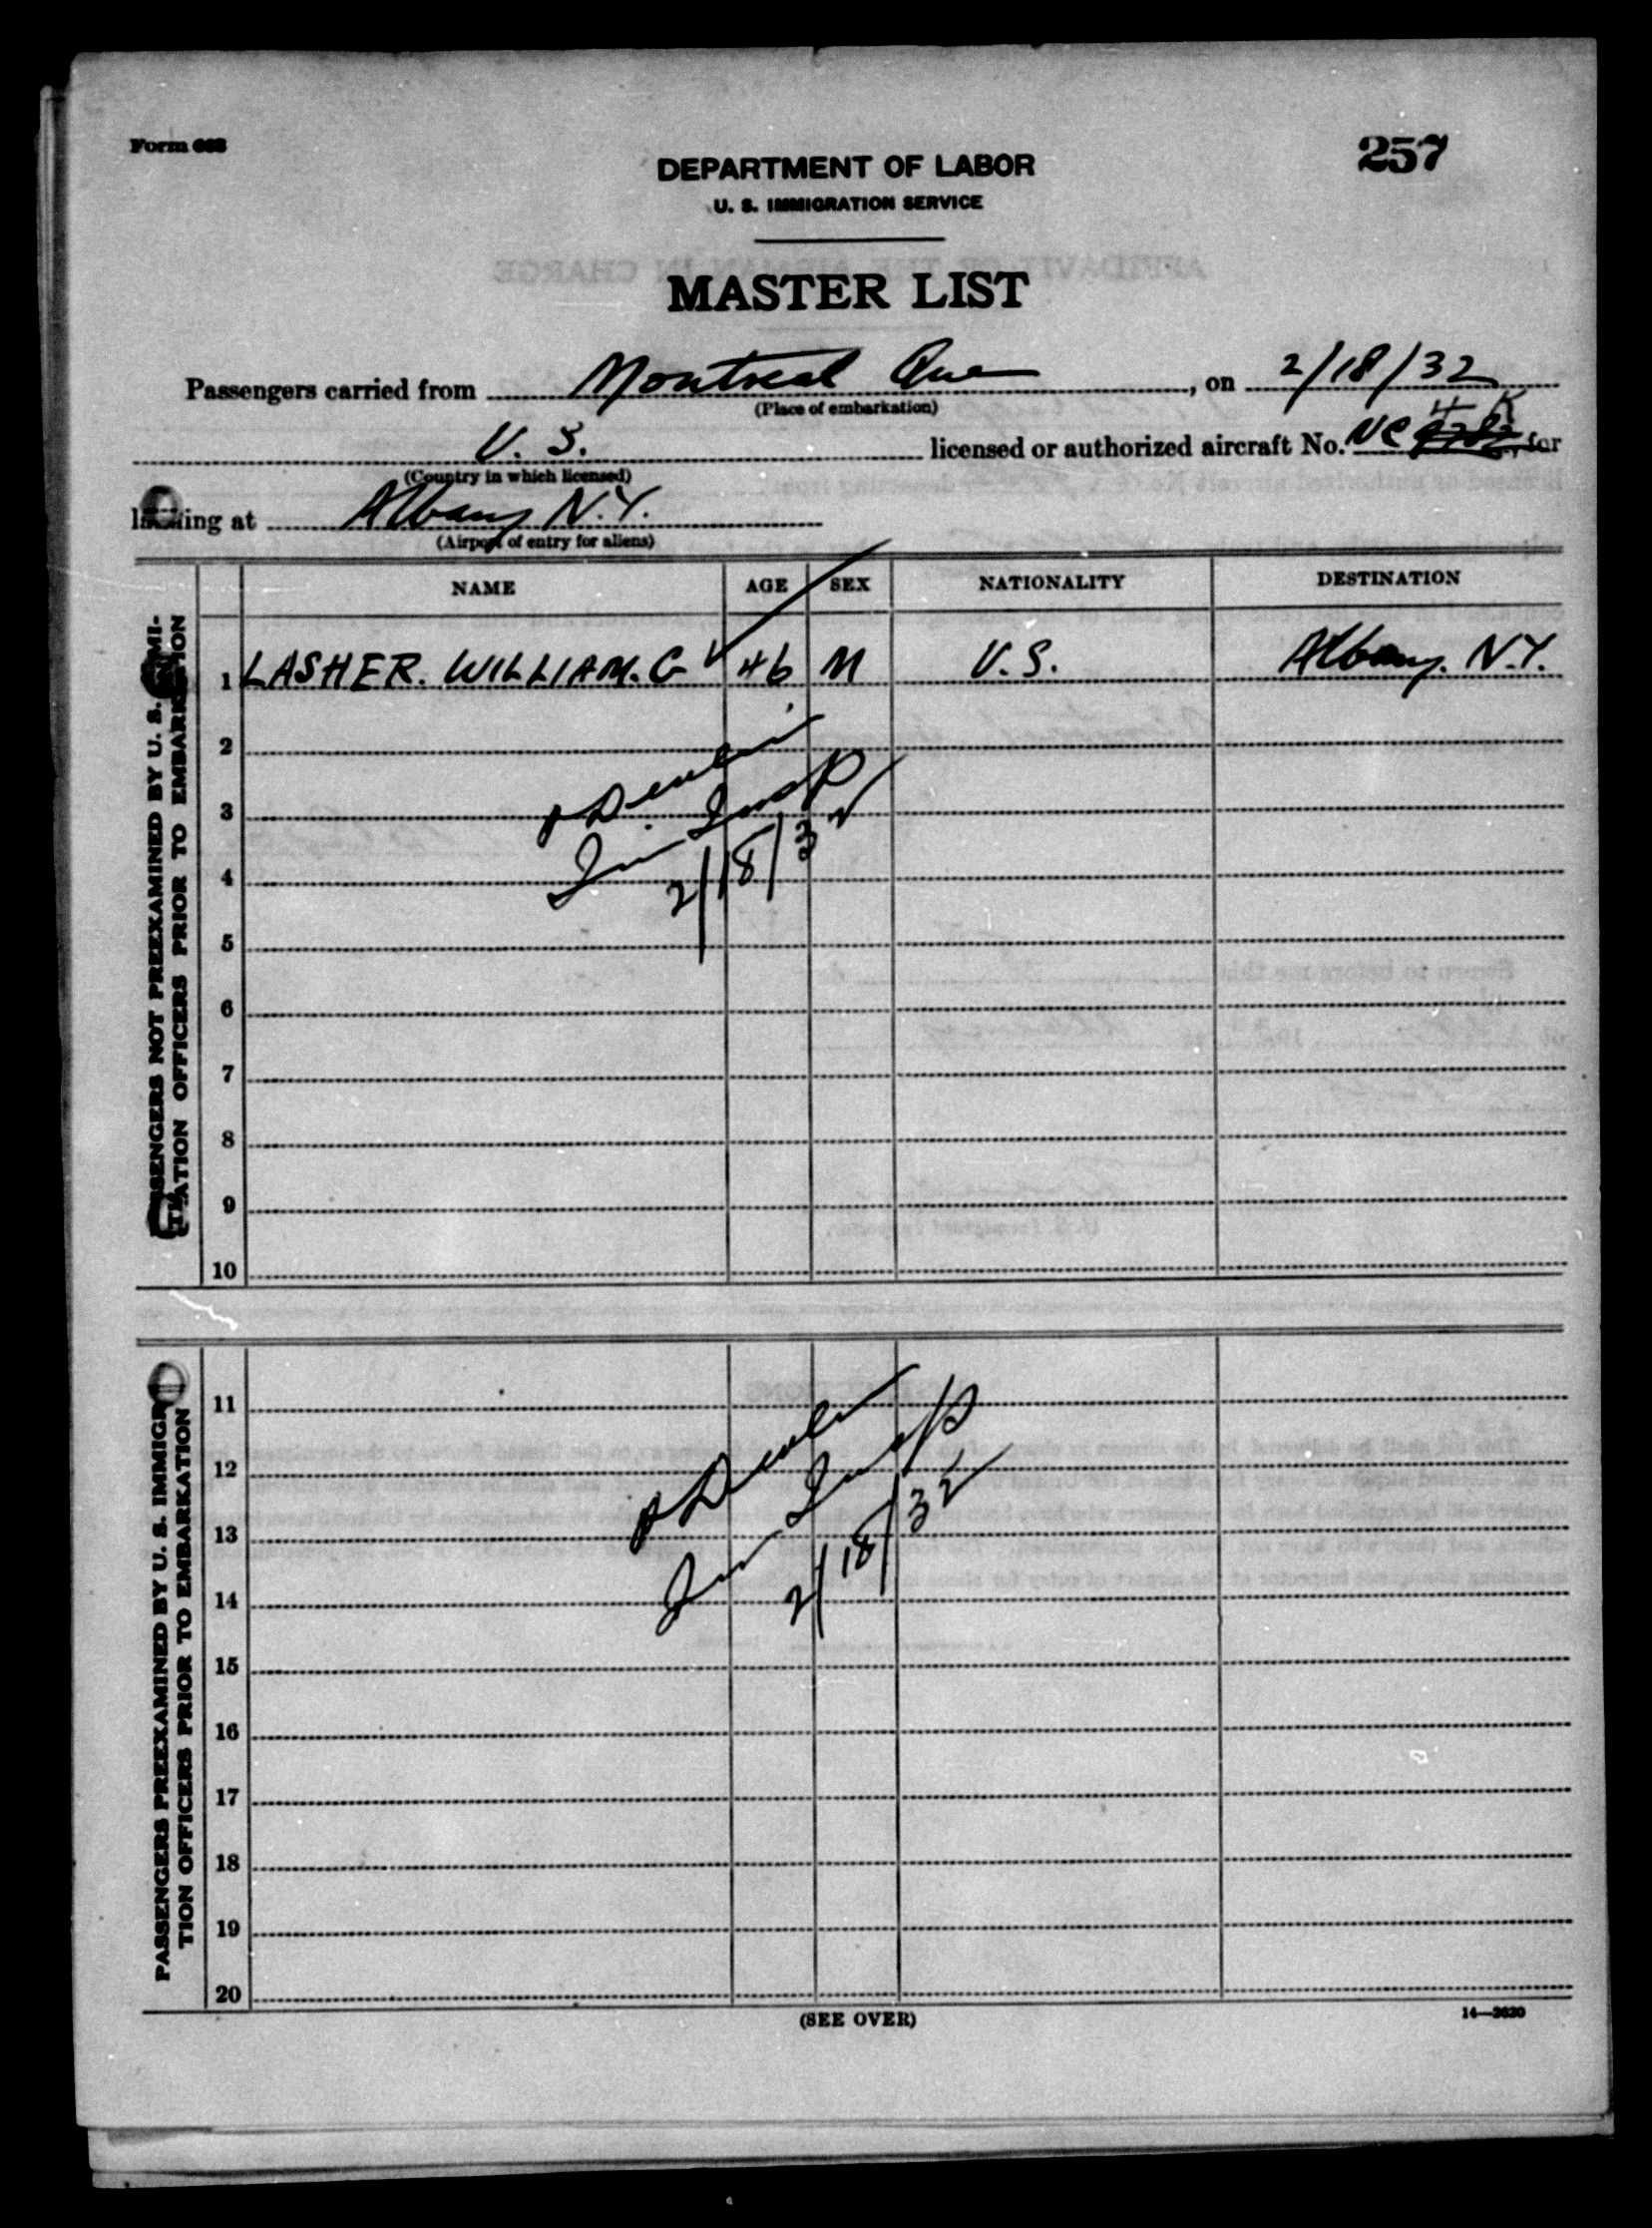 Form 668
257
DEPARTMENT OF LABOR
U. S. IMMIGRATION SERVICE
MASTER LIST
Passengers carried from Montreal Que, on 2/18/32
(Place of embarkation)
U. S. licensed or authorized aircraft No. NC for
(Country in which licensed)
landing at Albany N.Y.
(Airport of entry for aliens)
NAME AGE SEX NATIONALITY DESTINATION
PASSENGERS NOT PREEXAMINED BY U. S. IMMI-
GRATION OFFICERS PRIOR TO EMBARKATION
1 LASHER. WILLIAM. G ✓ 46 M U.S. Albany. N.Y.
2
3
4
Im Insp
2/18/32
5
6
7
8
9
10
PASSENGERS PREEXAMINED BY U. S. IMMIGRA-
TION OFFICERS PRIOR TO EMBARKATION
11
12
13
14
Im Insp
2/18/32
15
16
17
18
19
20
(SEE OVER)
14—2620